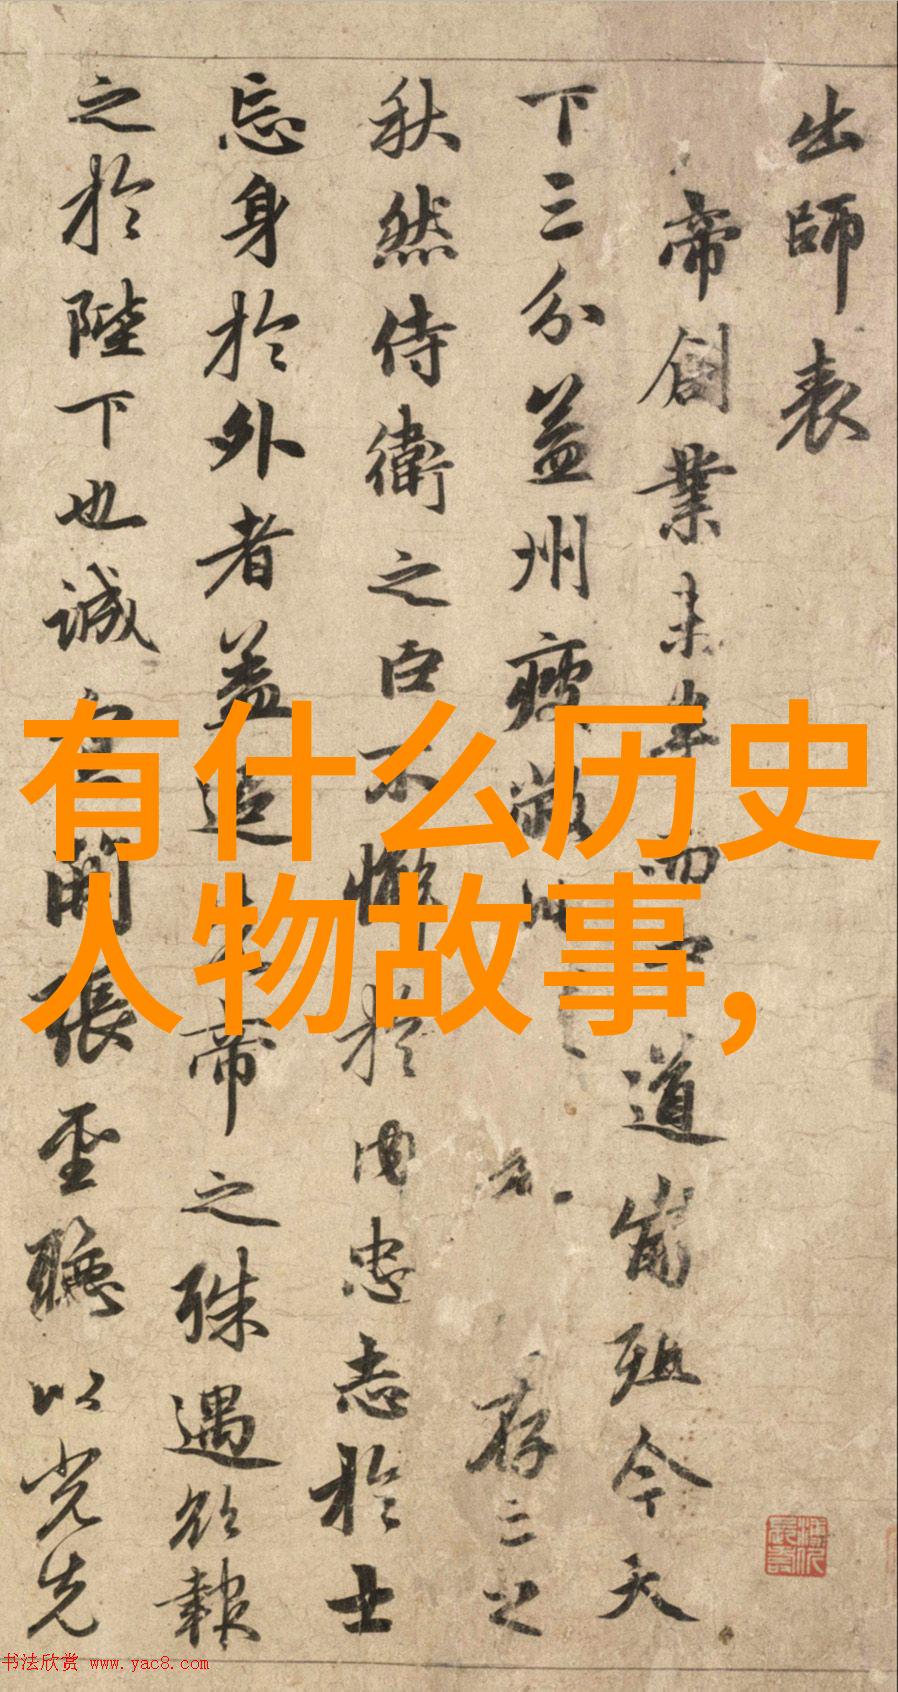 出師表
帝創業未半而中道崩殂今天
下三分益州疲敝此存亡之
秋然侍衛之臣不懈於内忠志於士
忘身於外者蓋追先帝之殊遇欲報
之於陛下也誠宜開張聖聽以光先
有什么历史
人物故事,
书法欣赏 www.yac8.com